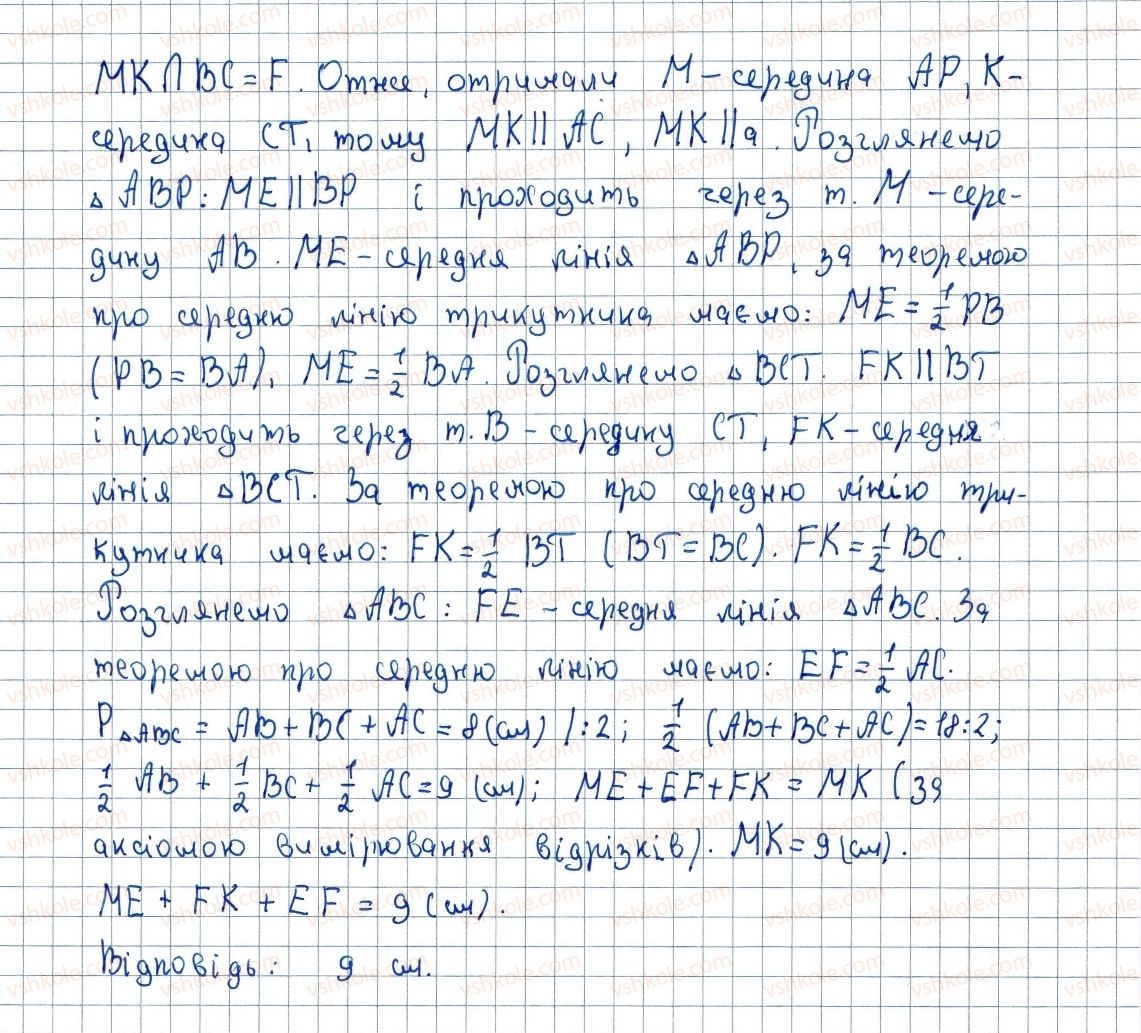 MK∩BC=F. Отже, отримали M-середина AP, K-
середина CT, тому MK||AC, MK||a. Розглянемо
△ABP: ME||BP і проходить через т. M-сере-
дину AB. ME-середня лінія △ABP, за теоремою
про середню лінію трикутника маємо: ME=1/2 PB
(PB=BA), ME=1/2 BA. Розглянемо △BCT. FK||BT
і проходить через т. B-середину CT, FK-середня
лінія △BCT. За теоремою про середню лінію три-
кутника маємо: FK=1/2 BT (BT=BC). FK=1/2 BC.
Розглянемо △ABC: FE-середня лінія △ABC. За
теоремою про середню лінію маємо: EF=1/2 AC.
P△ABC = AB+BC+AC=8(см) /:2; 1/2 (AB+BC+AC)=18:2;
1/2 AB + 1/2 BC + 1/2 AC=9 (см); ME+EF+FK = MK (за
аксіомою вимірювання відрізків). MK=9(см).
ME + FK + EF = 9 (см).
Відповідь: 9 см.